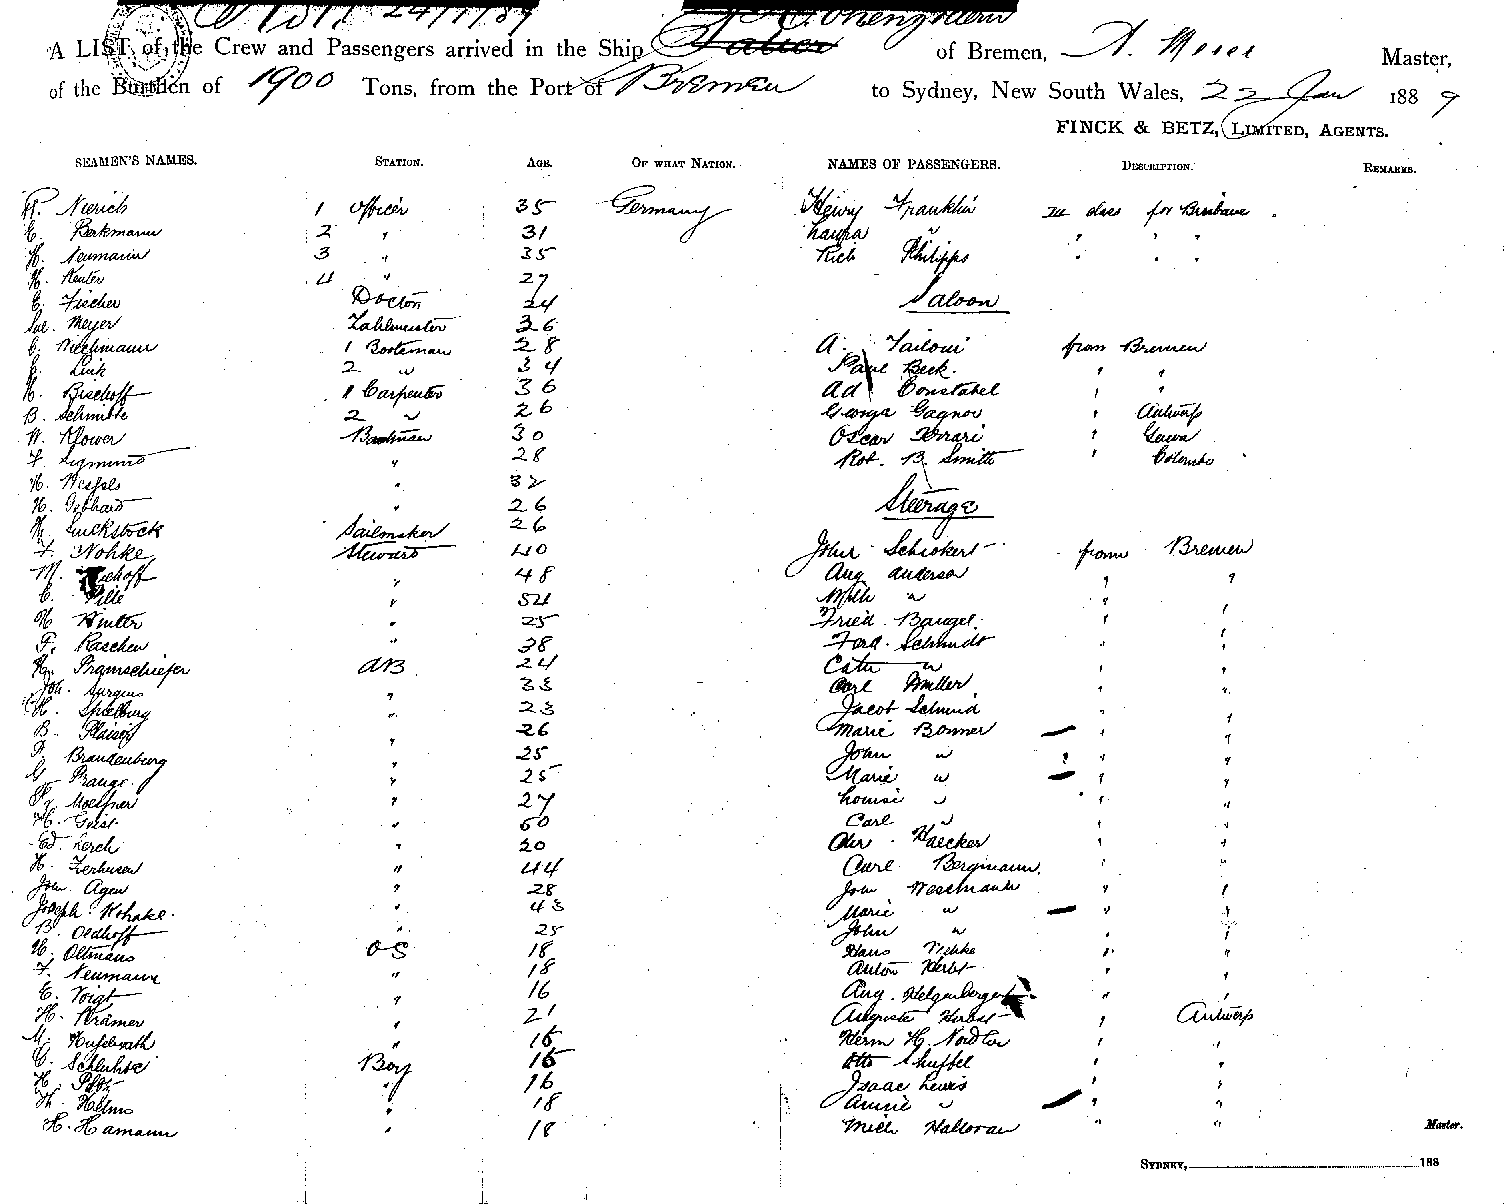 24/1/89
Hohenzollern
A LIST of the Crew and Passengers arrived in the Ship Salier of Bremen, A. Master,
of the Burthen of 1900 Tons, from the Port of Bremen to Sydney, New South Wales, 22 Jan 1889
FINCK & BETZ, LIMITED, AGENTS.
SEAMEN'S NAMES. STATION. AGE. OF WHAT NATION. NAMES OF PASSENGERS. DESCRIPTION. REMARKS.
R. Nierich 1 Officer 35 Germany Henry Franklin class for Brisbane
E. Berkmann 2 " 31 Laura " " " "
H. Neumann 3 " 35 Rich Philipps " " "
H. Reuter 4 " 27
E. Fischer Doctor 24 Saloon
Meyer Zahlmeister 36
C. Wiechmann 1 Bootsman 28 A. Tailoni from Bremen
Link 2 " 34 Paul Beck " "
H. Bischoff 1 Carpenter 36 Ad Constabel " "
B. Schmidt 2 " 26 George Gagnor " Antwerp
W. Klower Bootsman 30 Oscar Ferrari " Genua
F. Sigmund " 28 Rob. B. Smith " Colombo
H. Wessels " 32
H. Gebhard " 26 Steerage
H. Sailmaker 26
F. Nohke Steward 40 John Schickert from Bremen
M. " 48 Aug Anderson " "
C. Pille " 54 " " "
H. Winter " 25 Fried. Bangel " "
F. Raschen " 38 Ferd. Schmidt " "
Pramschiefer AB 24 Cath " " "
Joh. Surgens " 33 Carl Muller " "
H. Spielburg " 23 Jacob Schmid " "
B. Plaisir " 26 Marie Bonner " "
F. Brandenburg " 25 John " " "
G. Prange " 25 Marie " " "
Fr. Moessner " 27 Louise " " "
H. Geist " 60 Carl " " "
Ed. Lerch " 20 Chr. Haecker " "
H. Zerhusen " 44 Carl Bergmann " "
Joh. Agen " 28 John Weselmann " "
Joseph Kohake " 43 Marie " " "
B. Oldhoff " 25 John " " "
H. Oltmans OS 18 Hans " "
F. Neumann " 18 Anton Herbst " "
E. Voigt " 16 Aug. Helgenberger " "
H. Krämer " 21 Auguste Herbst " Antwerp
M. " 16 Herm H. Nordler " "
C. Schluhse Boy 15 Otto " "
H. " 16 Isaac Lewis " "
Th. Helms " 18 Annie " " "
H. Hamann " 18 Mich Halloran " "
Master.
SYDNEY, 188